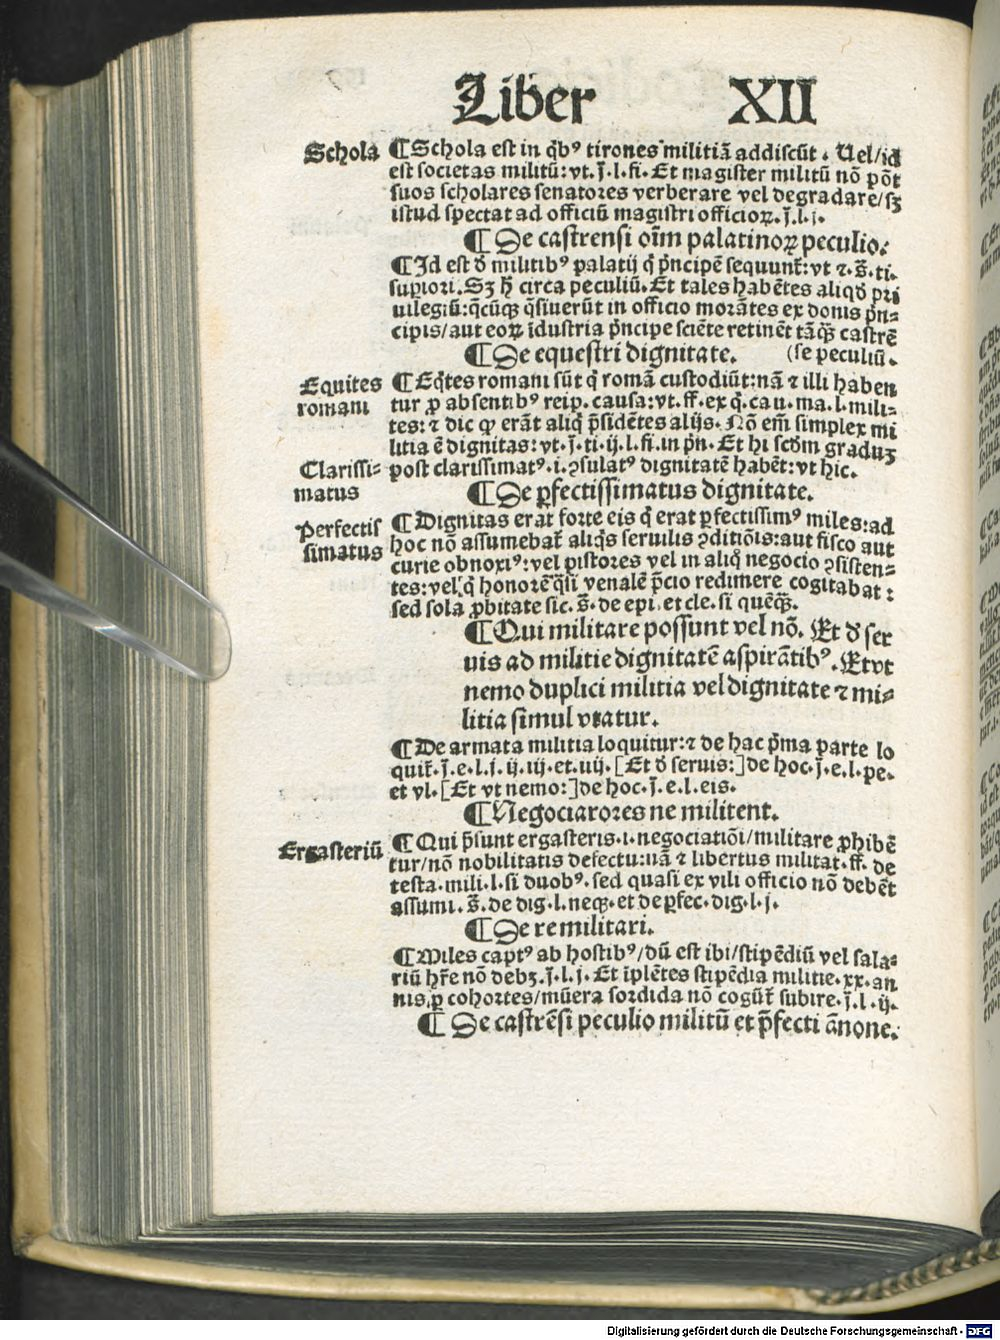 Liber XII
Schola
¶Schola est in qb⁹ tirones militiā addiscūt. Uel/id
est societas militū: vt. j̄. l. fi. Et magister militū nō pōt
suos scholares senatores verberare vel degradare/sꝫ
istud spectat ad officiū magistri officioꝝ. j̄. l. j.
¶De castrensi oīm palatinoꝝ peculio.
¶Id est ď militib⁹ palatij q̇ p̄ncipē sequunt̄: vt ⁊. s̄. ti.
supiori. Sꝫ h̄ circa peculiū. Et tales habētes aliqď pri
uilegiū: q̄cūqꝫ q̄siuerūt in officio morātes ex donis p̄n-
cipis/aut eoꝝ īdustria p̄ncipe sciēte retinēt tāqꝫ castrē
¶De equestri dignitate. (se peculiū.
Equites
romani
¶Eq̇tes romani sūt q̇ romā custodiūt: nā ⁊ illi haben
tur ꝓ absentib⁹ reip. causa: vt. ff. ex q̇. cau. ma. l. mili-
tes: ⁊ dic ꝙ erāt aliq̇ p̄sidētes alijs. Nō em̄ simplex mi
litia ē dignitas: vt. j̄. ti. ij. l. fi. in pn̄. Et hi scďm graduꝫ
Clarissi-
matus
post clarissimat⁹. i. ꝯsulat⁹ dignitatē habēt: vt hic.
¶De ꝑfectissimatus dignitate.
Perfectis
simatus
¶Dignitas erat forte eis q̇ erat ꝑfectissim⁹ miles: ad
hoc nō assumebat̄ aliq̇s seruilis ꝯditiōis: aut fisco aut
curie obnoxi⁹: vel pistores vel in aliq̇ negocio ꝯsisten-
tes: vel q̇ honorē q̄si venalē p̄cio redimere cogitabat:
sed sola ꝓbitate sic. s̄. de epi. et cle. si quēqꝫ.
¶Qui militare possunt vel nō. Et ď ser
uis ad militie dignitatē aspirātib⁹. Et vt
nemo duplici militia vel dignitate ⁊ mi-
litia simul vtatur.
¶De armata militia loquitur: ⁊ de hac p̄ma parte lo
quit̄. j̄. e. l. j. ij. iij. et. iiij. [Et ď seruis:] de hoc. j̄. e. l. pe.
et vl. [Et vt nemo:] de hoc. j̄. e. l. eis.
¶Negociatores ne militent.
Ergasteriū
¶Qui p̄sunt ergasteris. i. negociatiōi/militare ꝓhibē
tur/nō nobilitatis defectu: nā ⁊ libertus militat. ff. de
testa. mili. l. si duob⁹. sed quasi ex vili officio nō debēt
assumi. s̄. de dig. l. neqꝫ. et de ꝑfec. dig. l. j.
¶De re militari.
¶Miles capt⁹ ab hostib⁹/dū est ibi/stipēdiū vel sala-
riū hr̄e nō debꝫ. j̄. l. j. Et īplētes stipēdia militie. xx. an
nis, ꝑ cohortes/mūera sordida nō cogūt̄ subire. j̄. l. ij.
¶De castrēsi peculio militū et p̄fecti ānone.
Digitalisierung gefördert durch die Deutsche Forschungsgemeinschaft - DFG